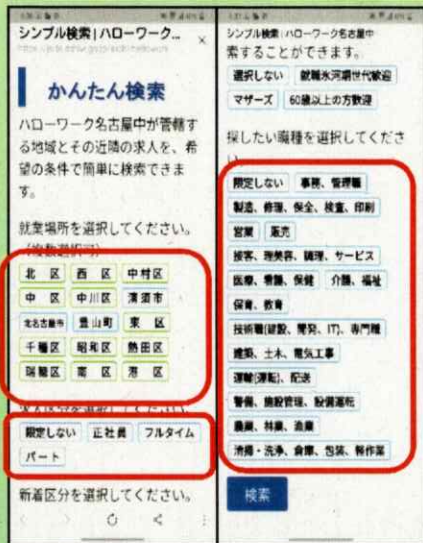 シンプル検索|ハローワーク...
かんたん検索
ハローワーク名古屋中が管轄す
る地域とその近隣の求人を、希
望の条件で簡単に検索できま
す。
就業場所を選択してください。
（複数選択可）
北 区 西 区 中村区
中 区 中川区 清須市
北名古屋市 豊山町 東 区
千種区 昭和区 熱田区
瑞穂区 南 区 港 区
限定しない 正社員 フルタイム
パート
新着区分を選択してください。
シンプル検索|ハローワーク名古屋中
索することができます。
選択しない 就職氷河期世代歓迎
マザーズ 60歳以上の方歓迎
探したい職種を選択してくださ
い
限定しない 事務、管理職
製造、修理、保全、検査、印刷
営業 販売
接客、理美容、調理、サービス
医療、看護、保健 介護、福祉
保育、教育
技術職(建設、開発、IT)、専門職
建築、土木、電気工事
運輸(運転)、配送
警備、施設管理、設備運転
農業、林業、漁業
清掃・洗浄、倉庫、包装、軽作業
検索